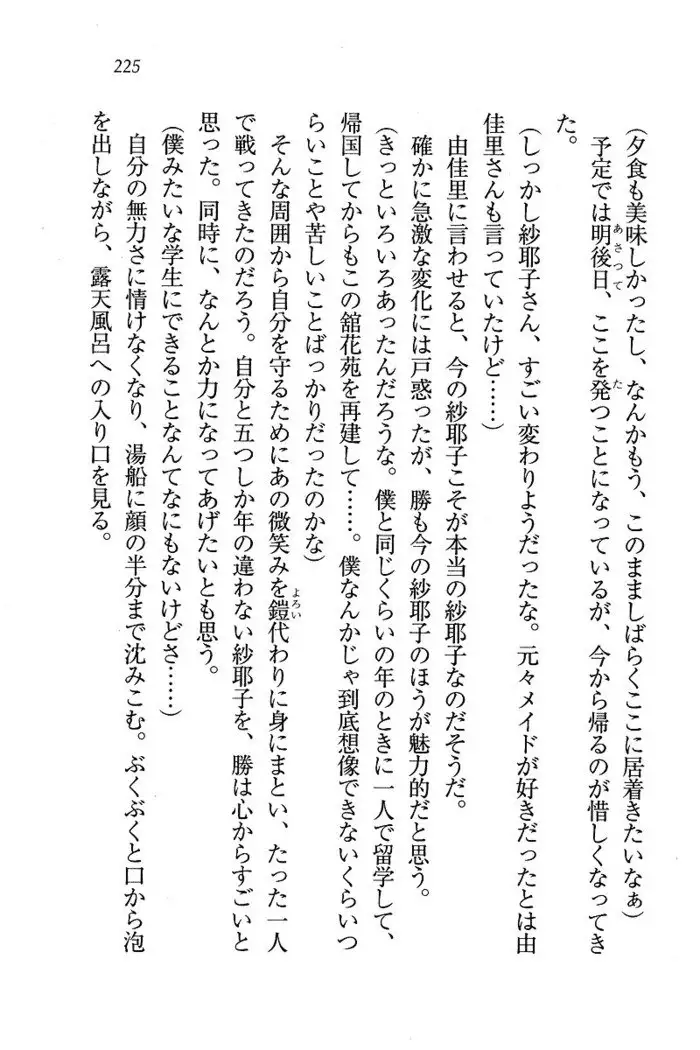 225
(夕食も美味しかったし、なんかもう、このまましばらくここに居着きたいなぁ)
予定では明後日、ここを発つことになっているが、今から帰るのが惜しくなってき
た。
(しっかし紗耶子さん、すごい変わりようだったな。元々メイドが好きだったとは由
佳里さんも言っていたけど……)
由佳里に言わせると、今の紗耶子こそが本当の紗耶子なのだそうだ。
確かに急激な変化には戸惑ったが、勝も今の紗耶子のほうが魅力的だと思う。
(きっといろいろあったんだろうな。僕と同じくらいの年のときに一人で留学して、
帰国してからもこの舘花苑を再建して……。僕なんかじゃ到底想像できないくらいつ
らいことや苦しいことばっかりだったのかな)
そんな周囲から自分を守るためにあの微笑みを鎧代わりに身にまとい、たった一人
で戦ってきたのだろう。自分と五つしか年の違わない紗耶子を、勝は心からすごいと
思った。同時に、なんとか力になってあげたいとも思う。
(僕みたいな学生にできることなんてなにもないけどさ……)
自分の無力さに情けなくなり、湯船に顔の半分まで沈みこむ。ぶくぶくと口から泡
を出しながら、露天風呂への入り口を見る。